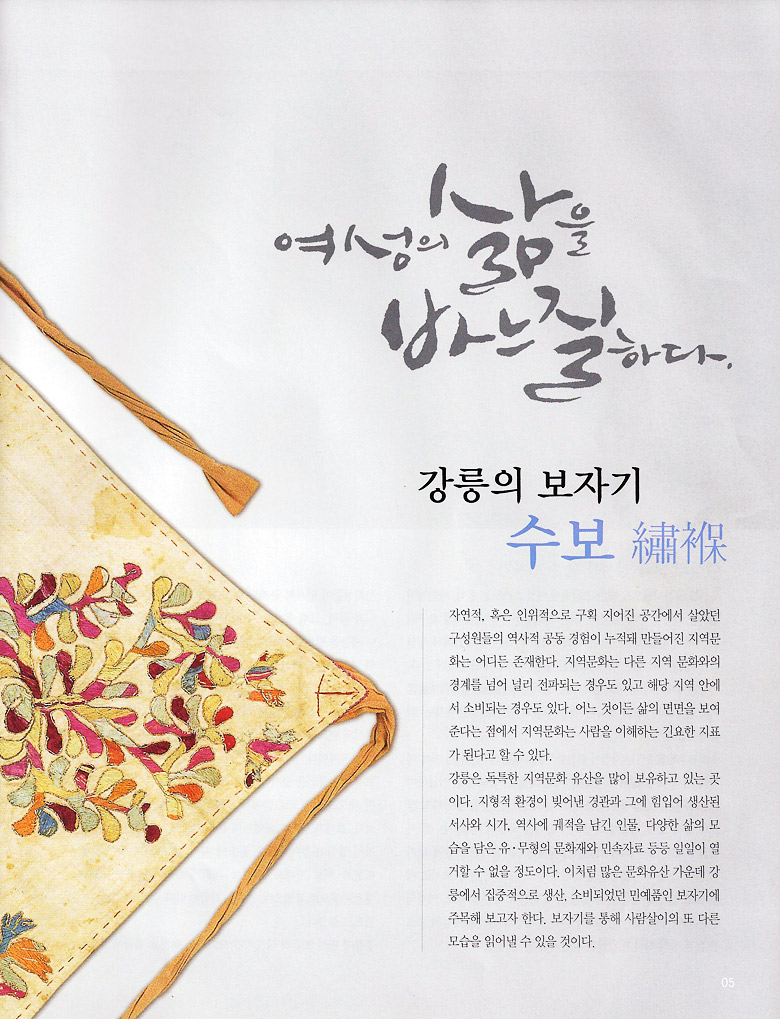 여성의 삶을
바느질하다.
강릉의 보자기
수보 繡褓
자연적, 혹은 인위적으로 구획 지어진 공간에서 살았던
구성원들의 역사적 공동 경험이 누적돼 만들어진 지역문
화는 어디든 존재한다. 지역문화는 다른 지역 문화와의
경계를 넘어 널리 전파되는 경우도 있고 해당 지역 안에
서 소비되는 경우도 있다. 어느 것이든 삶의 면면을 보여
준다는 점에서 지역문화는 사람을 이해하는 긴요한 지표
가 된다고 할 수 있다.
강릉은 독특한 지역문화 유산을 많이 보유하고 있는 곳
이다. 지형적 환경이 빚어낸 경관과 그에 힘입어 생산된
서사와 시가, 역사에 궤적을 남긴 인물, 다양한 삶의 모
습을 담은 유·무형의 문화재와 민속자료 등등 일일이 열
거할 수 없을 정도이다. 이처럼 많은 문화유산 가운데 강
릉에서 집중적으로 생산, 소비되었던 민예품인 보자기에
주목해 보고자 한다. 보자기를 통해 사람살이의 또 다른
모습을 읽어낼 수 있을 것이다.
05